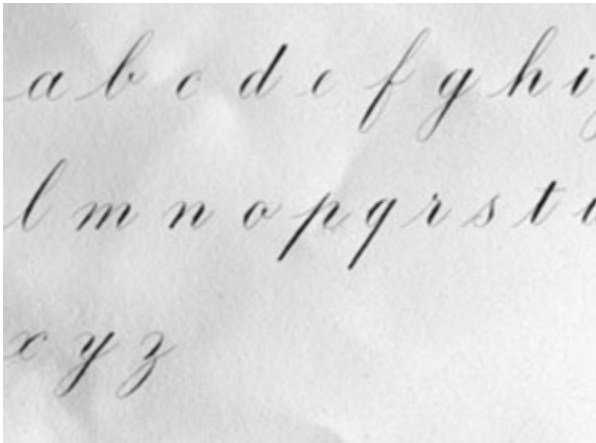 a b c d e f g h i
l m n o p q r s t
x y z